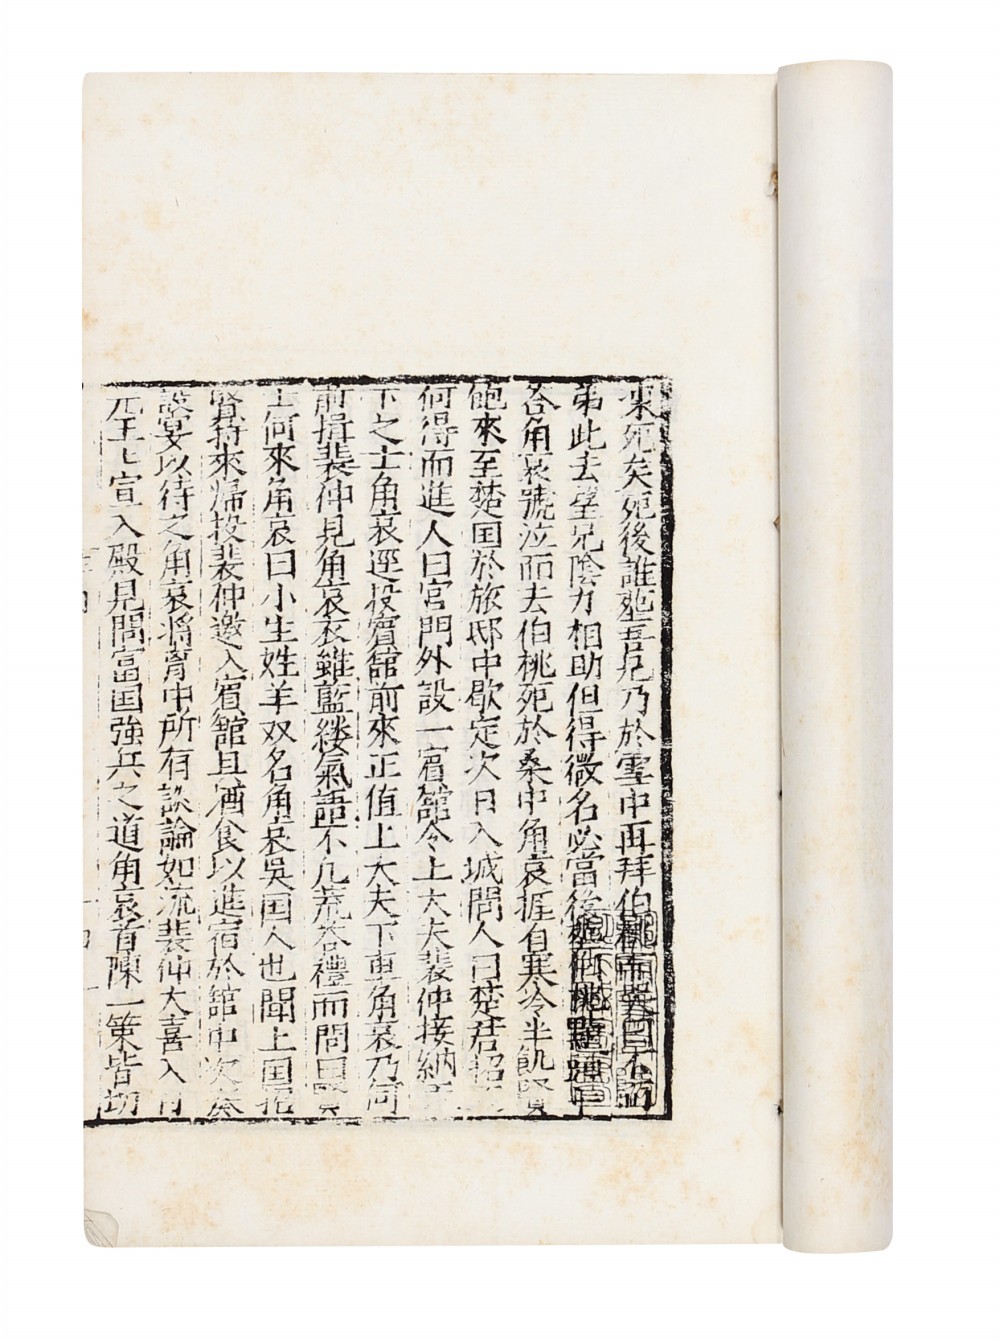 凍死矣死後誰塟吾兄乃於雪中再拜伯桃而哭曰不肖
弟此去望兄陰力相助但得微名必當後塟伯桃點頭
答角哀號泣而去伯桃死於桑中角哀捱自寒冷半飢
飽來至楚国於旅邸中歇定次日入城問人曰楚君招
何得而進人曰宮門外設一賔舘令上大夫裴仲接納
下之士角哀逕投賔舘前來正值上大夫下車角哀乃向
前揖裴仲見角哀衣雖藍縷氣語不凢荒答禮而問曰賢
士何來角哀曰小生姓羊双名角哀吳国人也聞上国招
賢特來歸投裴仲邀入賔舘具酒食以進宿於舘中次
設宴以待之角哀將胷中所有談論如流裴仲大喜入
元王宣入殿見問富国強兵之道角哀首陳一策皆切